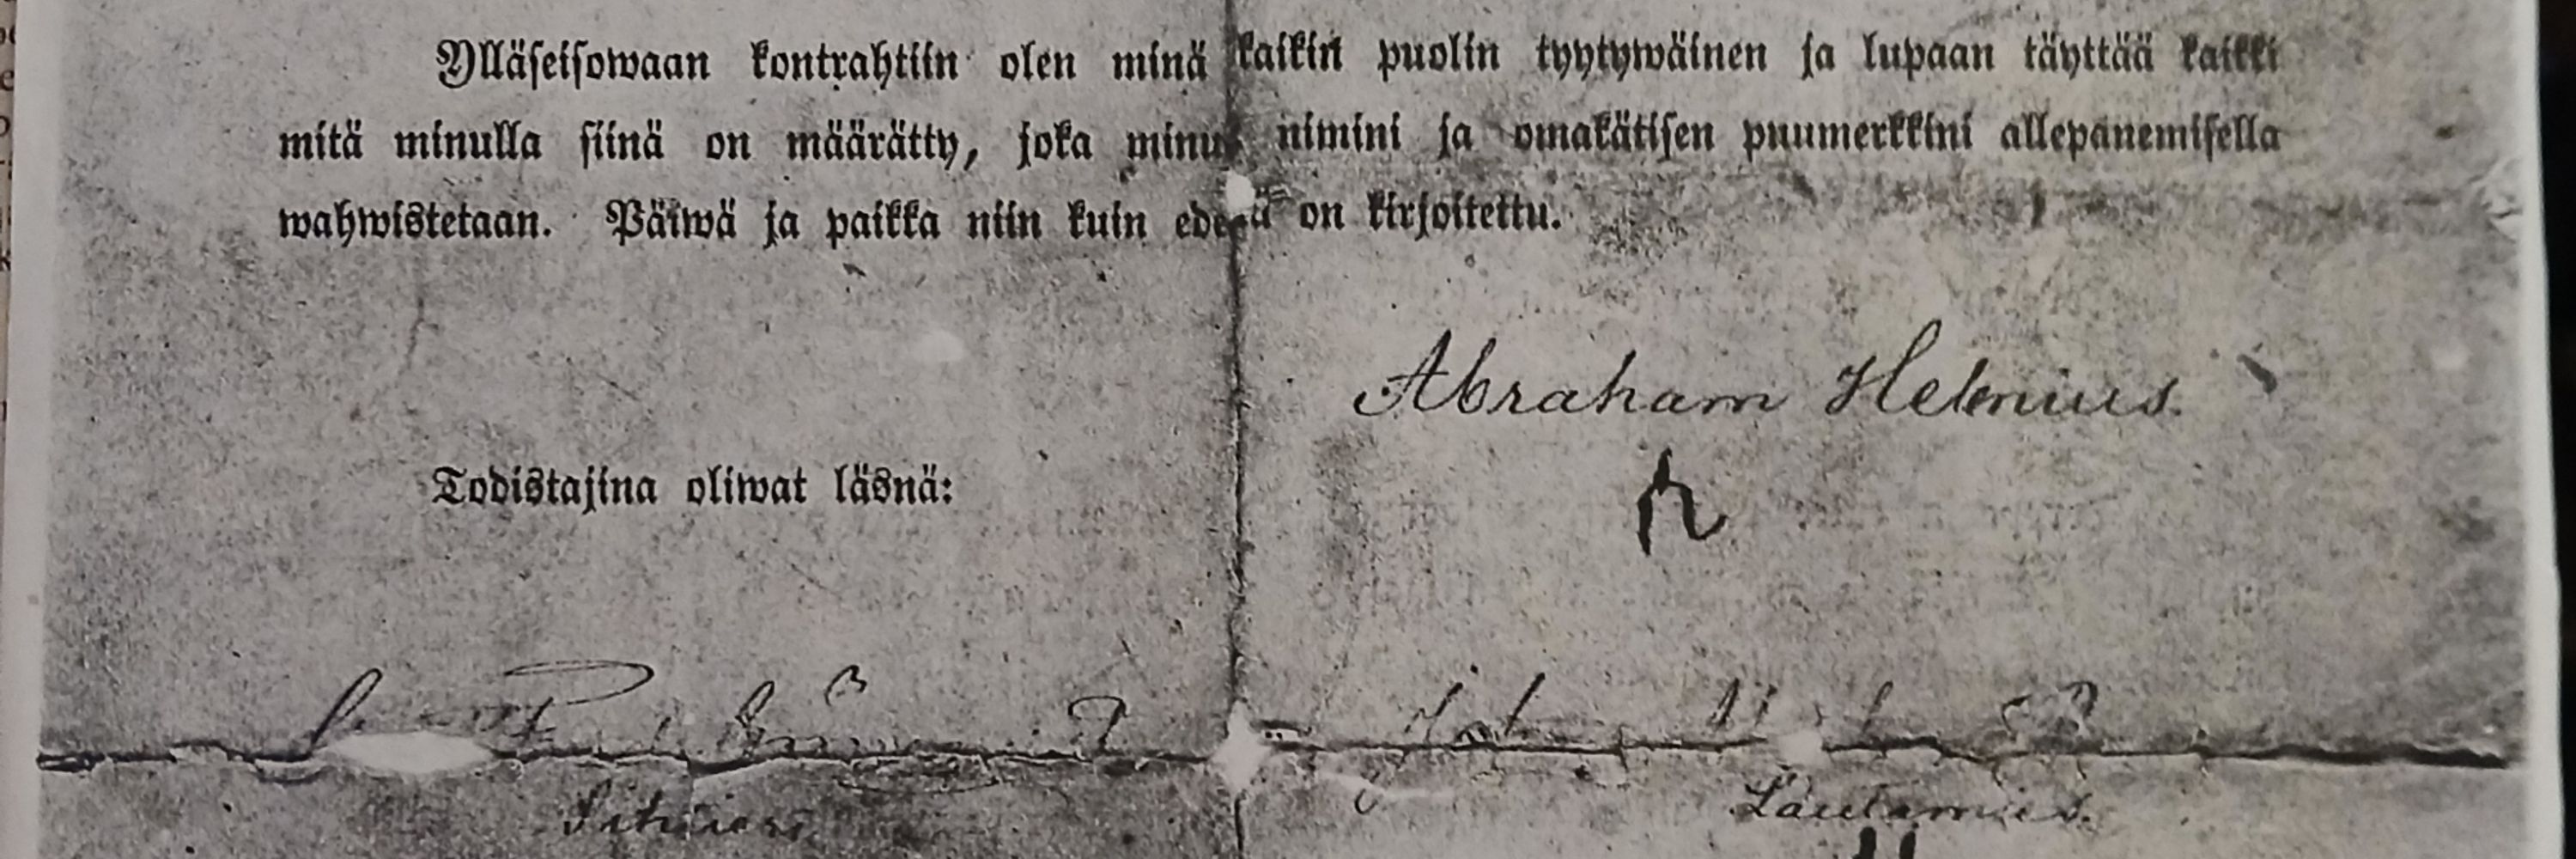 Ylläseisowaan kontrahtiin olen minä kaikin puolin tyytywäinen ja lupaan täyttää kaikki
mitä minulla siinä on määrätty, joka minun nimini ja omakätisen puumerkkini allepanemisella
wahwistetaan. Päiwä ja paikka niin kuin edellä on kirjoitettu.
Abraham Helenius.
Todistajina oliwat läsnä:
Lautamies.